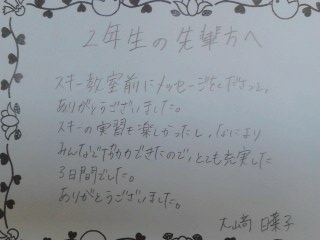 2年生の先輩方へ
スキー教室前にメッセージをくださって、
ありがとうございました。
スキーの実習も楽しかったし、なにより
みんなで協力できたので、とても充実した
3日間でした。
ありがとうございました。
大山奇 日菜子